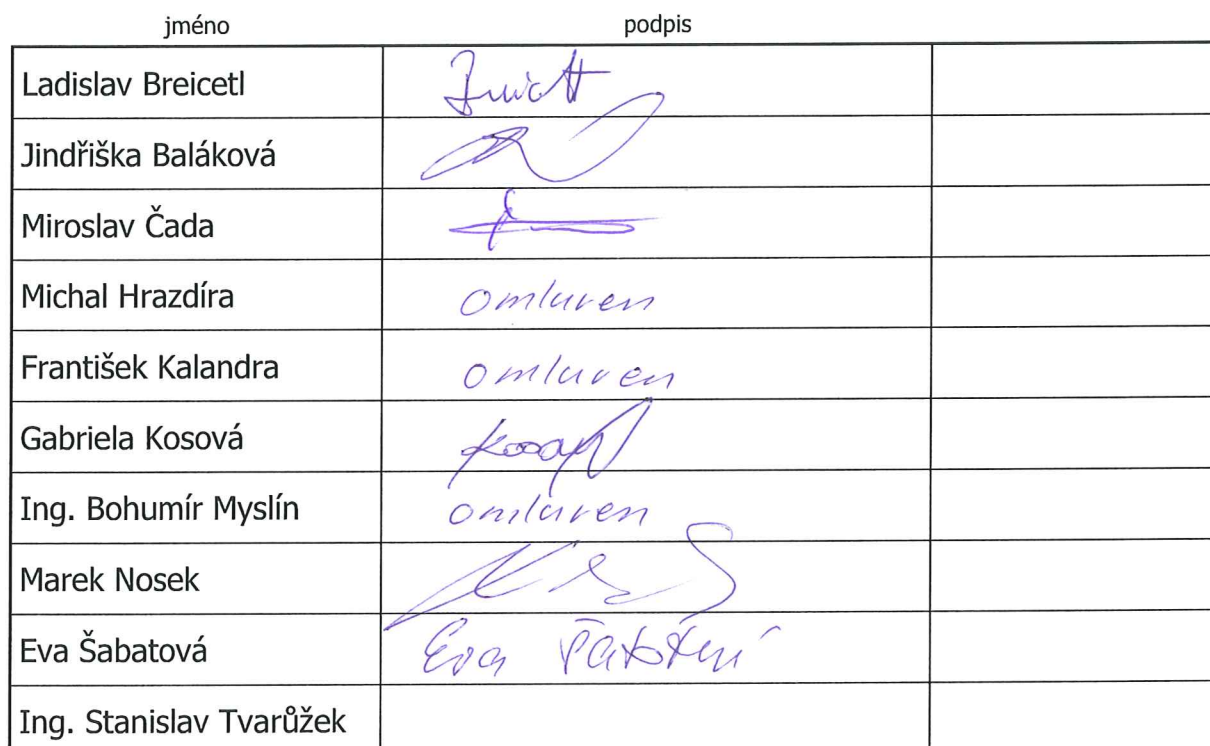 jméno podpis
Ladislav Breicetl
Jindřiška Baláková
Miroslav Čada
Michal Hrazdíra omluven
František Kalandra omluven
Gabriela Kosová
Ing. Bohumír Myslín omluven
Marek Nosek
Eva Šabatová Eva
Ing. Stanislav Tvarůžek